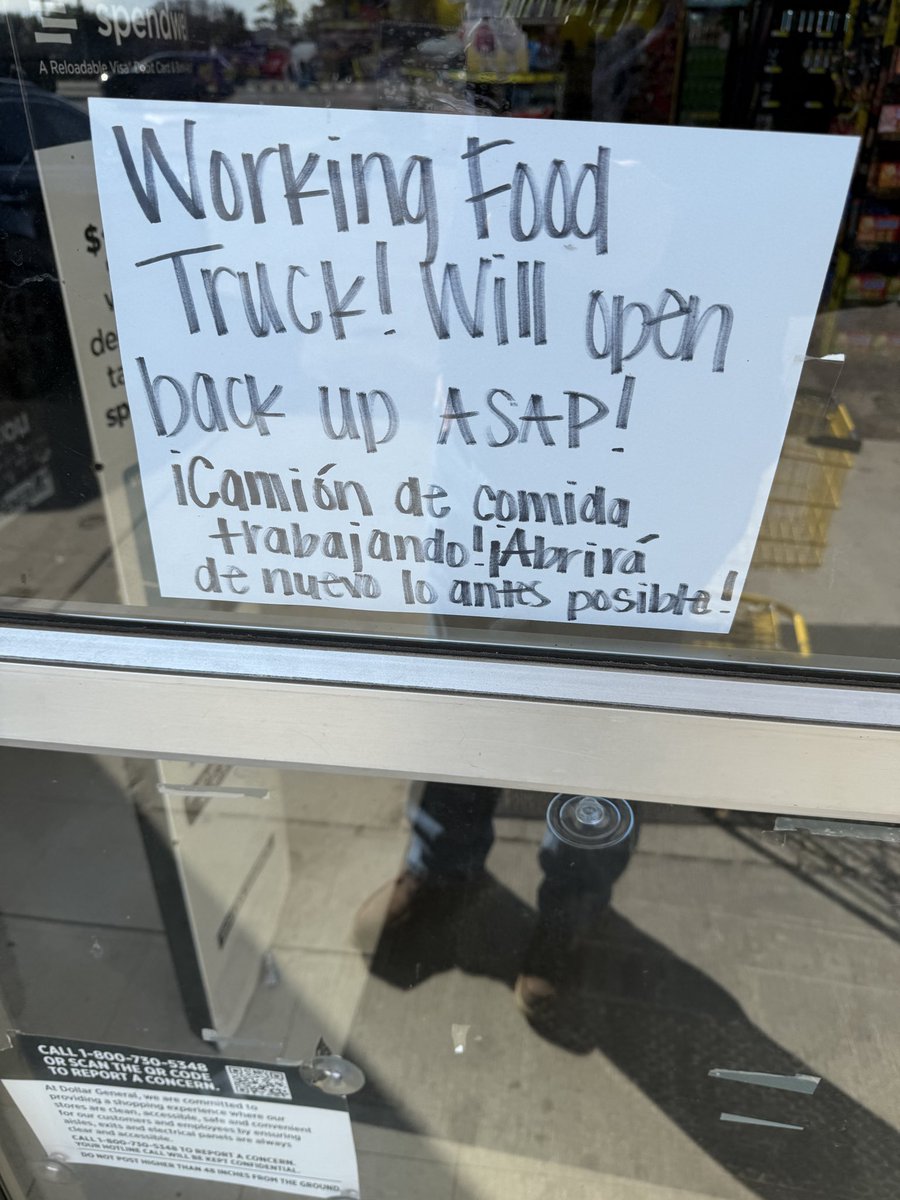 Spendwe
A Reloadable Visa® Debit Card &
Working Food
Truck! Will open
back up ASAP!
¡Camión de comida
trabajando! ¡Abrirá
de nuevo lo antes posible!
$
de
sp
CALL 1-800-730-5348
OR SCAN THE QR CODE
TO REPORT A CONCERN.
At Dollar General, we are committed to
providing a shopping experience where our
stores are clean, accessible, safe and convenient
for our customers and employees by ensuring
aisles, exits and electrical panels are always
clear and accessible.
CALL 1-800-730-5348 TO REPORT A CONCERN.
YOUR HOTLINE CALL WILL BE KEPT CONFIDENTIAL.
DO NOT POST HIGHER THAN 48 INCHES FROM THE GROUND